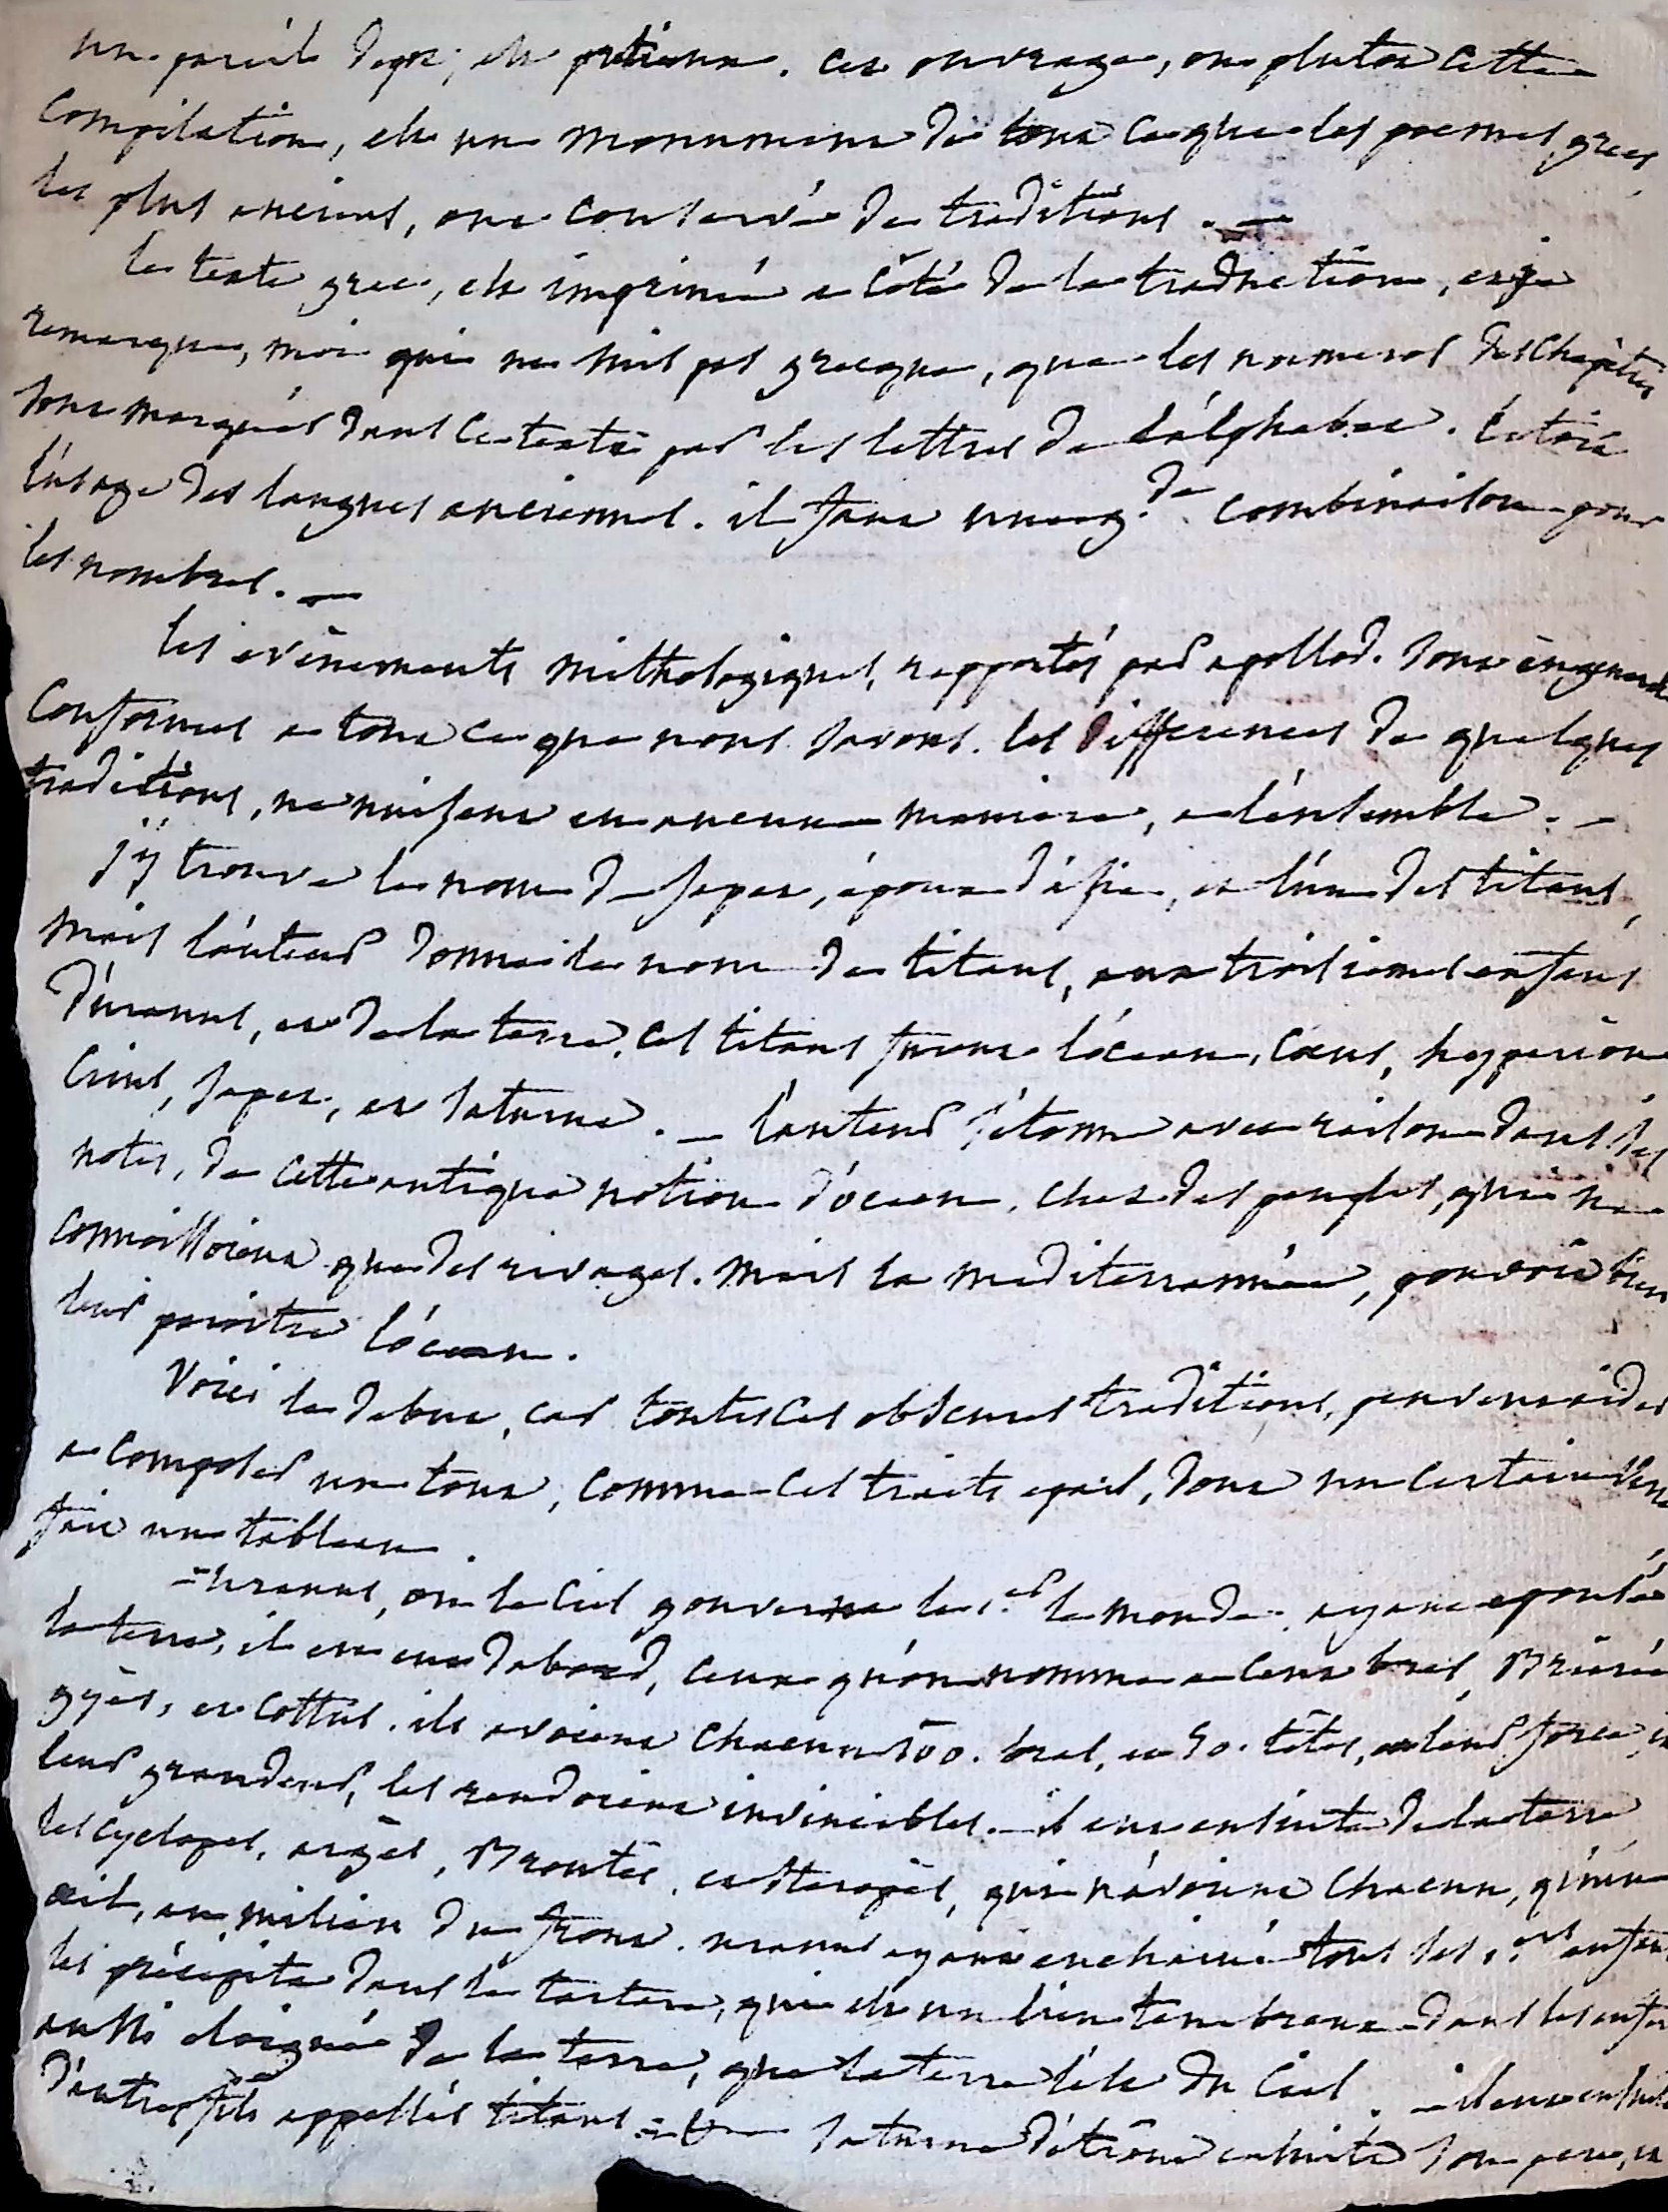 un pareil degré, est prétieux. cet ouvrage, ou plutot cette
compilation, est un monument de tout ce que les poemes grecs
les plus anciens, ont conservé de traditions. —
le texte grec, est imprimé a côté de la traduction, et je
remarque, moi qui ne suis pas grecque, que les numeros des chapitres
sont marqués dans le texte par les lettres de l'alphabet. c'etoit
l'usage des langues anciennes. il faut une gde. combinaison pour
les nombres. —
les evènements mithologiques, rapportés par apollod. sont en general
conformes a tout ce que nous savons. les differences de quelques
traditions, ne nuisent en aucune maniere, a l'ensemble. —
j'y trouve le nom de Japet, époux d'asie, et l'un des titans,
mais l'auteur donne le nom de titans, aux troisiemes enfans
d'uranus, et de la terre. ces titans furent l'ócean, Cœus, hyperion
Crius, Japet, et saturne. — l'auteur s'étonne avec raison dans ses
notes, de cette antique notion d'ócean, chez des peuples, qui ne
connoissoient que des rivages. mais la mediterrannée, pouvoit bien
leur paroitre l'ócean.
Voici le debut, car toutes ces obscures traditions, peuvent aider
a composer un tout, comme ces traits epars, dont un certain sens
fait un tableau.
= uranus, ou le Ciel gouverna le 1.er le monde. ayant epousé
la terre, il en eut dabord, ceux qu'on nomme a cent bras, Briarée
gyès, et Cottus. ils avoient chacun 100. bras, et 50. têtes, et leur force, et
leur grandeur, les rendoient invincibles. — il eut ensuite de la terre
les cyclopes, argès, Brontès, et steropès, qui n'avoient chacun, qu'un
œil, au milieu du front. uranus ayant enchainé tous ses 1.ers enfans
les précipita dans le tartare, qui est un lieu tenebreux dans les enfers
aussi eloigné de la terre, que la terre l'est du ciel. — il eut ensuite
d'autres fils appellés titans = saturne détrôna ensuite son pere, et